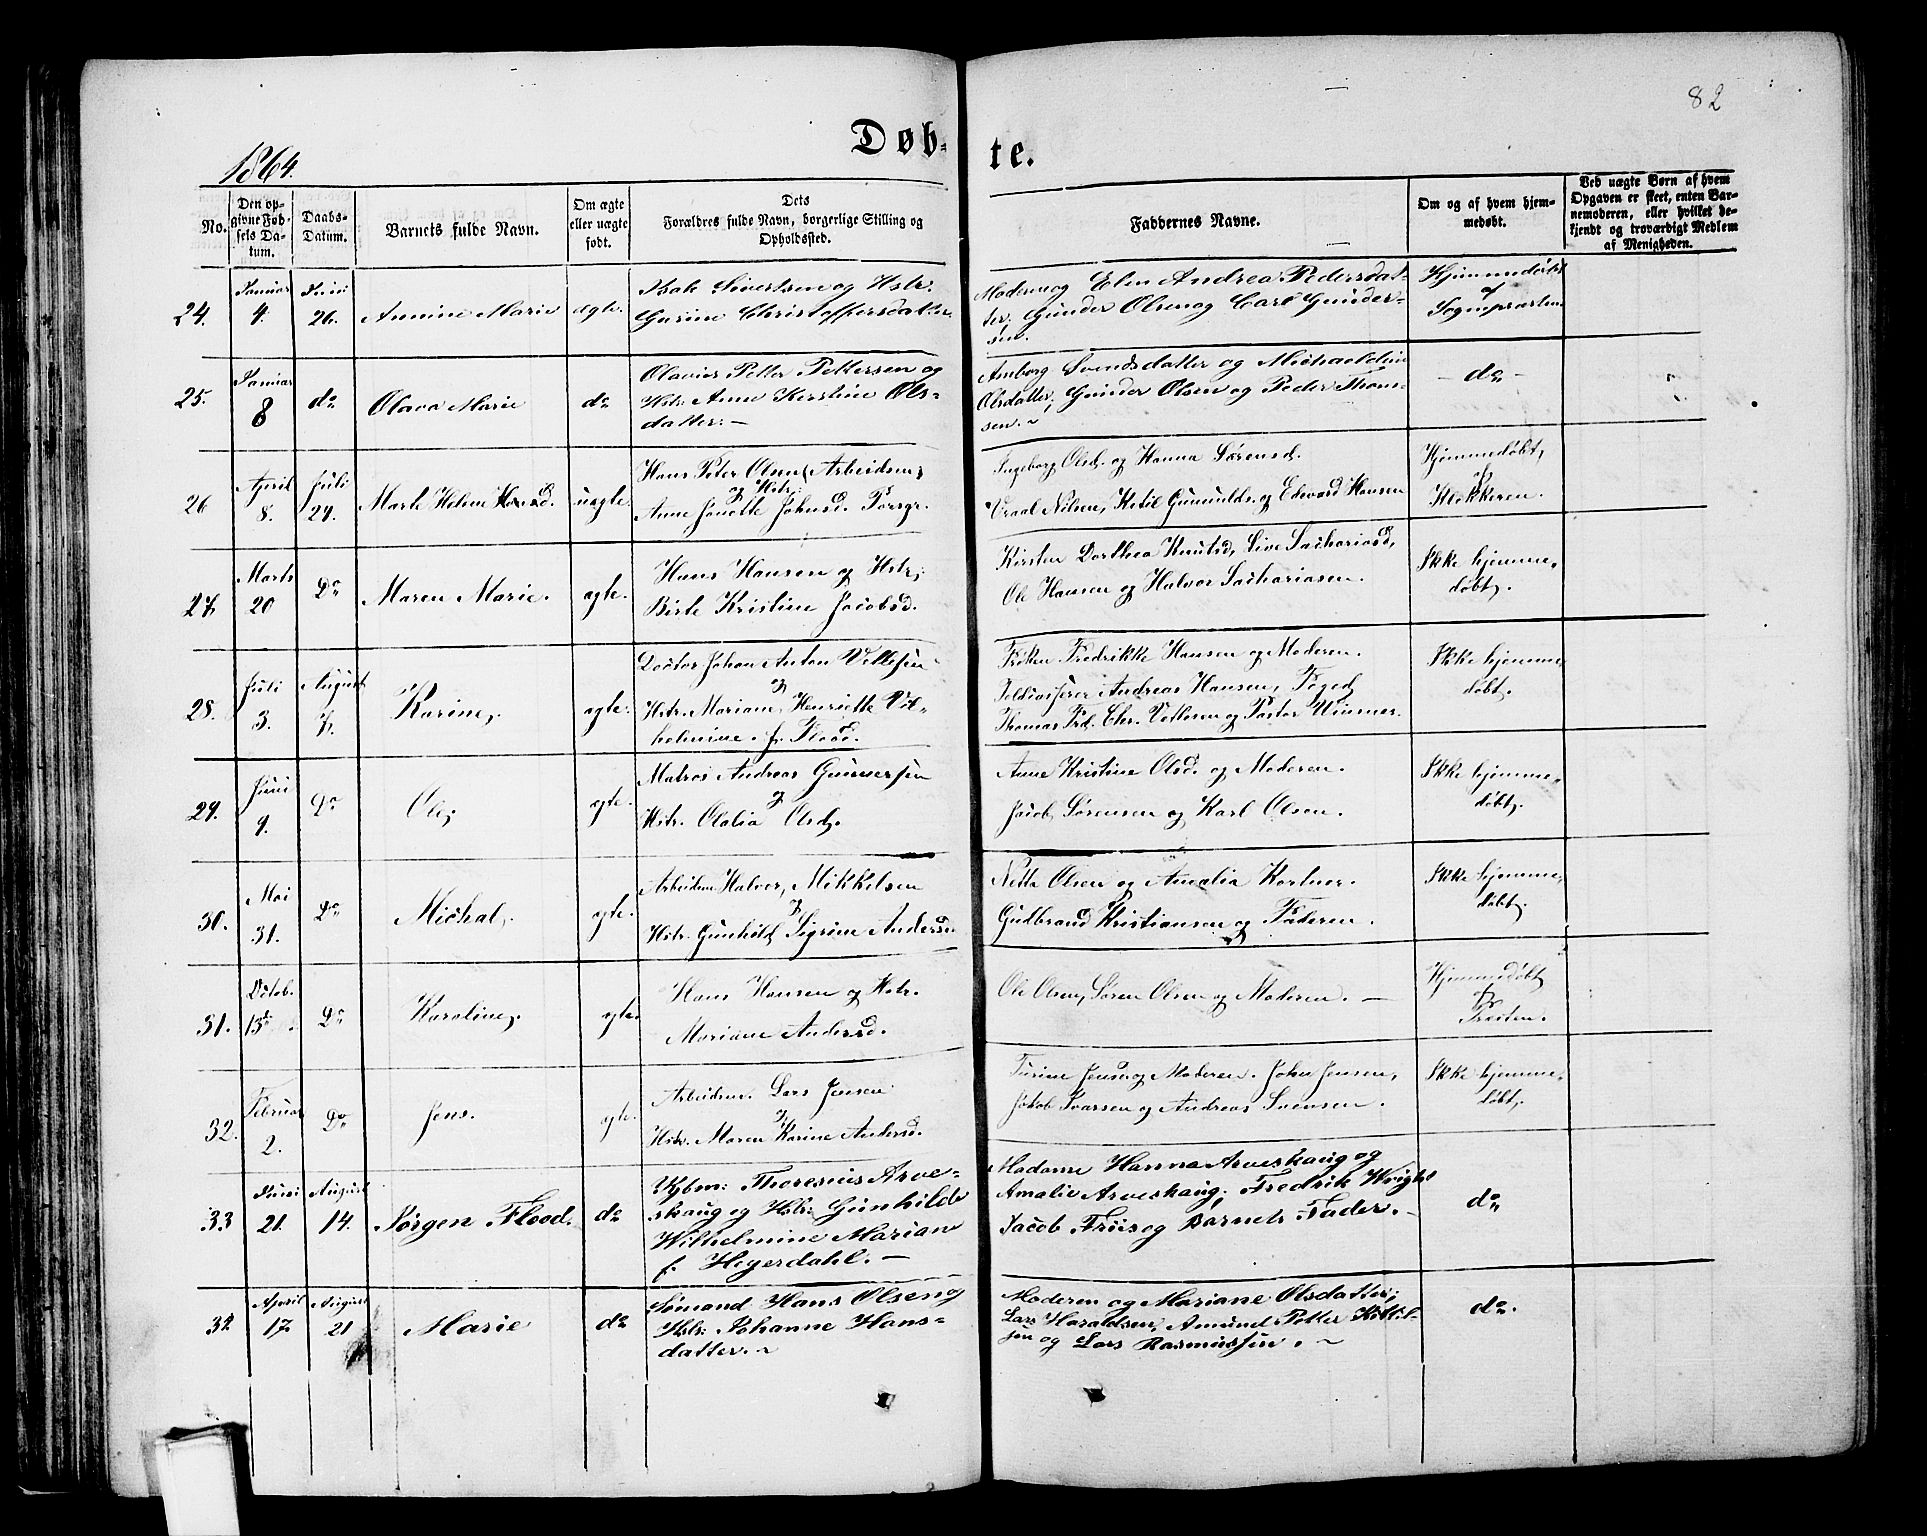 82
1864.
Døb-
te.
No.
Den op-
givne Fød-
sels Da-
tum.
Daabs-
Datum.
Barnets fulde Navn.
Om ægte
eller uægte
født.
Dets
Forældres fulde Navn, borgerlige Stilling og
Opholdssted.
Faddernes Navne.
Om og af hvem hjem-
medøbt.
Ved uægte Børn af hvem
Opgaven er skeet, enten Bar-
nemoderen, eller hvilket be-
kjendt og troværdigt Medlem
af Menigheden.
24.
Januar
4.
Juni
26.
Annine Marie
ægte.
Isak Sivertsen og Hstr.
Gurine Christoffersdatter
Moderen og Elen Andrea Pedersdat-
ter. Gunder Olsen og Carl Gunder-
sen.
Hjemmedøbt
af
Sognepræsten
25.
Januar
8
do
Olava Marie
do
Olavius Petter Pettersen og
Hstr. Anne Kirstine Ols-
datter. —
Amborg Svendsdatter og Michaeldine
Olsdatter; Gunder Olsen og Peder Thom-
sen. ~
- do -
26
April
8.
Juli
24.
Marte Helene Hansd.
uægte.
Hans Peter Olsen (Arbeidsm;
og Hstr;
Anne Jonette Johnsd. Porsgr.
Ingeborg Olsd. og Hanna Sørensd.
Vraal Nilsen, Ketil Gunnulds. og Edvard Hansen
Hjemmedøbt,
af
Klokkeren.
27.
Marts
20
Do
Maren Marie.
ægte.
Hans Hansen og Hstr;
Birte Kristine Jacobsd.
Kirsten Dorthea Knutsd, Live Sachariasd,
Ole Hansen og Halvor Sachariasen.
Ikke hjemme-
døbt.
28.
Juli
3.
August
7.
Karine,
ægte.
Doctor Johan Anton Vettesen
og
Hstr. Mariane Henriette Vil-
helmine f. Flood.
Frøken Fredrikke Hansen og Moderen.
Toldkasserer Andreas Hansen, Foged
Thomas Frd. Chr. Vettesen og Pastor Wimmer.
Ikke hjemme
døbt.
29.
Juni
9.
Do
Ole,
ægte.
Matros Andreas Gunnersen
og
Hstr. Olalia Olsd.
Anne Kristine Olsd. og Moderen.
Jacob Sørensen og Karl Olsen.
Ikke hjemme-
døbt.
30.
Mai
31.
Do
Michal.
ægte.
Arbeidsm Halvor Mikkelsen
og
Hstr. Gunhild Sigrine Andersd
Netta Olsen og Amalia Kortner.
Gudbrand Kristiansen og Faderen.
Ikke hjemme-
døbt.
31.
Octob.
13de
Do
Karoline,
ægte
Hans Hansen og Hstr.
Mariane Andersd.
Ole Olsen, Søren Olsen og Moderen. —
Hjemmedøbt
af
Presten.
32.
Februar
2.
Do
Jens.
ægte.
Arbeidsm. Lars Jensen
og
Hstr. Maren Karine Andersd.
Turine Jens. og Moderen. John Jensen,
Jakob Ivarsen og Andreas Svensen.
Ikke hjemme-
døbt.
33
Juni
21.
August
14.
Jørgen Flood.
do
Kjbm: Thoresius Arve-
skaug og Hstr: Gunhilde
Wilhelmine Mariane
f. Hegerdahl. —
Madame Hanna Arveskaug og
Amalie Arveskaug; Fredrik Wright
Jacob Friis og Barnets Fader. -
do
34
April
17
August
21
Marie
do
Sømand Hans Olsen og
Hstr: Johanne Hans-
datter. ~
Moderen og Mariane Olsdatter;
Lars Haraldsen, Amund Petter Kittil-
sen og Lars Rasmussen. ~
do.